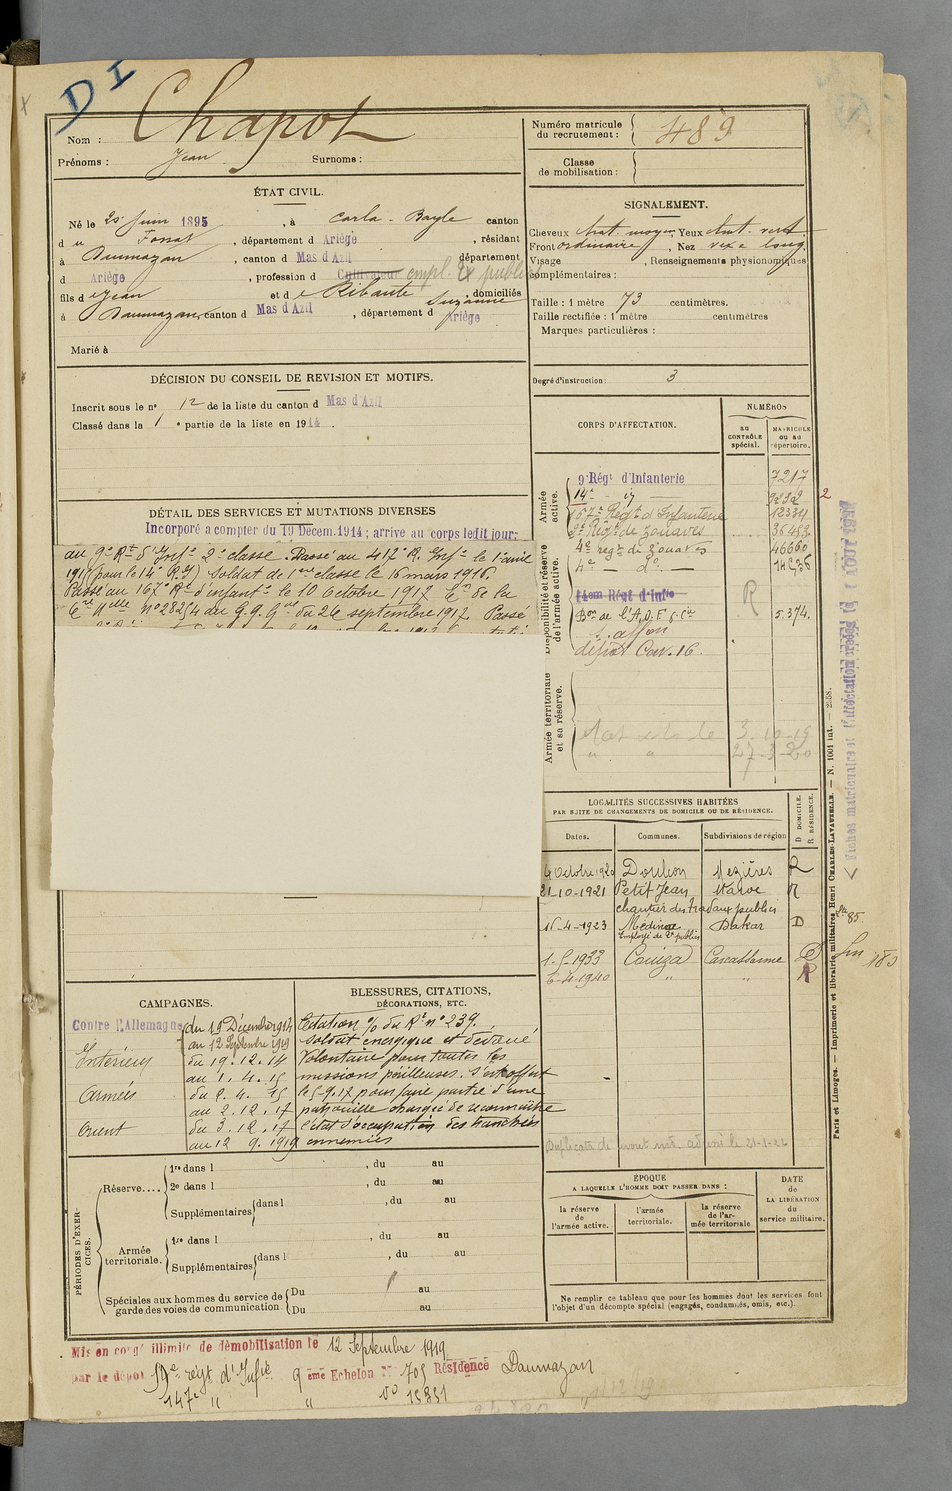 DI
Nom : Chapot
Prénoms : Jean Surnoms :
Numéro matricule du recrutement : 489
Classe de mobilisation :
ÉTAT CIVIL.
Né le 25 Juin 1895, à Carla-Bayle canton
du Fossat, département d Ariège, résidant
à Daumazan, canton d Mas d'Azil département
d Ariège, profession d Cultivateur empl. Tx publics
fils de Jean et de Ribaute Suzanne, domiciliés
à Daumazan, canton d Mas d'Azil, département d Ariège
Marié à
SIGNALEMENT.
Cheveux chat. moyen Yeux chat. vert
Front ordinaire, Nez long
Visage , Renseignements physionomiques
complémentaires :
Taille : 1 mètre 73 centimètres.
Taille rectifiée : 1 mètre centimètres
Marques particulières :
Degré d'instruction : 3
DÉCISION DU CONSEIL DE REVISION ET MOTIFS.
Inscrit sous le n° 12 de la liste du canton d Mas d'Azil
Classé dans la 1e partie de la liste en 1914.
DÉTAIL DES SERVICES ET MUTATIONS DIVERSES
Incorporé a compter du 19 Décem. 1914; arrive au corps ledit jour;
au 9e Rt d'Infie 2e classe. Passé au 412e R. Infie le 1 avril
1915 (pour le 14e R.I) Soldat de 1ère classe le 16 mars 1916.
Passé au 167e Rt d'Infantie le 10 Octobre 1917
n° 28214 du G.Q.Gal du 26 septembre 1917. Passé
CORPS D'AFFECTATION.
NUMÉROS
au contrôle spécial.
matricule ou au répertoire.
Armée active.
9e Régt d'Infanterie 7217
14e id 9232
167e Régt d'Infanterie 12334
2e Régt de Zouaves 36483
4e régt de Zouaves 46660
4e do
Disponibilité et réserve de l'armée active.
14em Régt d'Infie R
Bon de l'A.O.F. 5.374.
S. affon
dépôt Cav. 16.
Armée territoriale et sa réserve.
3-10-19
27-3-20
LOCALITÉS SUCCESSIVES HABITÉES
PAR SUITE DE CHANGEMENTS DE DOMICILE OU DE RÉSIDENCE.
Dates. Communes. Subdivisions de région D DOMICILE. R RÉSIDENCE.
4 Octobre 1920 Doulon Mezières R
21-10-1921 Petit Jean Maroc R
chantier des travaux publics
16-4-1923 Médine Dakar D
Employé de Tx publics
1-5-1933 Couiza Carcassonne D
6-4-1940 " " R
CAMPAGNES.
Contre l'Allemagne du 19 Décembre 1914
au 12 Septembre 1919
Intérieur du 19.12.14
au 1.4.15
Armées du 2.4.15
au 2.12.17
Orient du 3.12.17
au 12 9.1919
BLESSURES, CITATIONS,
DÉCORATIONS, ETC.
Citation % du Rt n° 239.
Soldat énergique et dévoué
Volontaire pour toutes les
missions périlleuses. S'est offert
le 5-9.17 pour faire partie d'une
patrouille chargée de reconnaître
l'état d'occupation des tranchées
ennemies
PÉRIODES D'EXERCICES.
Réserve.... 1re dans l , du au
2e dans l , du au
Supplémentaires dans l , du au
Armée territoriale. 1re dans l , du au
Supplémentaires dans l , du au
Spéciales aux hommes du service de garde des voies de communication Du au
Du au
ÉPOQUE
A LAQUELLE L'HOMME DOIT PASSER DANS :
la réserve de l'armée active.
l'armée territoriale.
la réserve de l'armée territoriale
DATE de LA LIBÉRATION du service militaire.
Ne remplir ce tableau que pour les hommes dont les services font
l'objet d'un décompte spécial (engagés, condamnés, omis, etc.).
Paris et Limoges. — Imprimerie et librairie militaires Henri CHARLES-LAVAUZELLE. — N. 1001 int. — 2558.
Mis en congé illimité de démobilisation le 12 Septembre 1919
par le dépôt régt d'Infie 9 ème Echelon N° 705 Résidence Daumazan
147e " " v° 15351